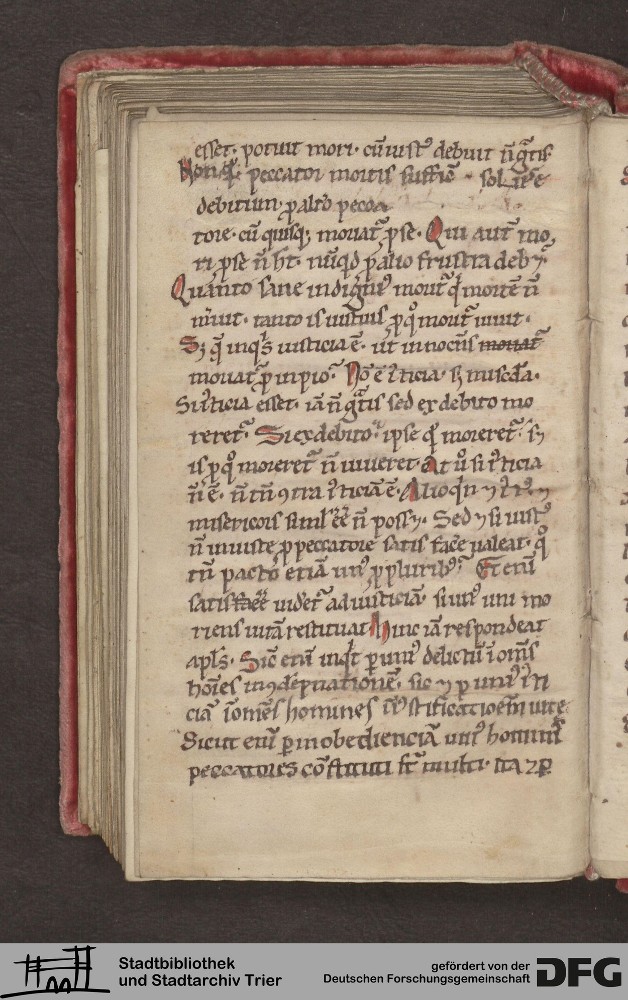 esset · potuit mori · cū iust᷒ debuit n̄ gͣtis ·
peccator mortis suffic̄
debitum · ꝓ alt̓o pecca
tore · cū quisq; moriat᷑ ꝓ se · Qui aut̄ mo
ri ꝓ se n̄ h̄t · nūqͥd ꝓ alio frustra deb
Quanto sane indigni᷒ morit᷑ qͥ mortē n̄
tanto is iustius ꝓ qͦ morit᷑ uiuit ·
S; q̄ inqͥs iusticia ē · ut innocens moriat᷑
moriat᷑ ꝓ inpio · Nō ē iᷤticia · s; mis̄cd̄ia ·
Si iᷤticia esset · iā n̄ gͣtis sed ex debito mo
reret᷑ · Si ex debito · ipse qͥ moreret᷑ · s;
is ꝓ qͦ moreret᷑ n̄ uiueret · At u̓ si iᷤticia
n̄ ē · n̄ tn̄ ꝯtra iᷤticiā ē · Alioqͥn ⁊ iᷤt᷒ ⁊
misericors simł eē n̄ poss · Sed ⁊ si iust᷒
n̄ iniuste ꝓ peccatore satisfac̓e ualeat · qͦ
tn̄ pacto etiā un᷒ ꝓ plurib᷒ · Et eni̅
satisfac̓e uidet᷑ ad iusticiā · si un᷒ uni mo
riens uitā restituat Hinc iā respondeat
apl̄s · Sic̄ eni̅ inqͥt ꝑ uni᷒ delictū ī om̄s
hoīes in ꝯdēpnationē · sic ⁊ ꝑ uni᷒ iᷤti
ciā ī omēs homines iustificatioēm uite
Sicut eni̅ ꝑ inobedienciā uni᷒ hominis
peccatores constituti st̄ multi · ita ⁊ ꝑ
Stadtbibliothek
und Stadtarchiv Trier
gefördert von der
Deutschen Forschungsgemeinschaft
DFG